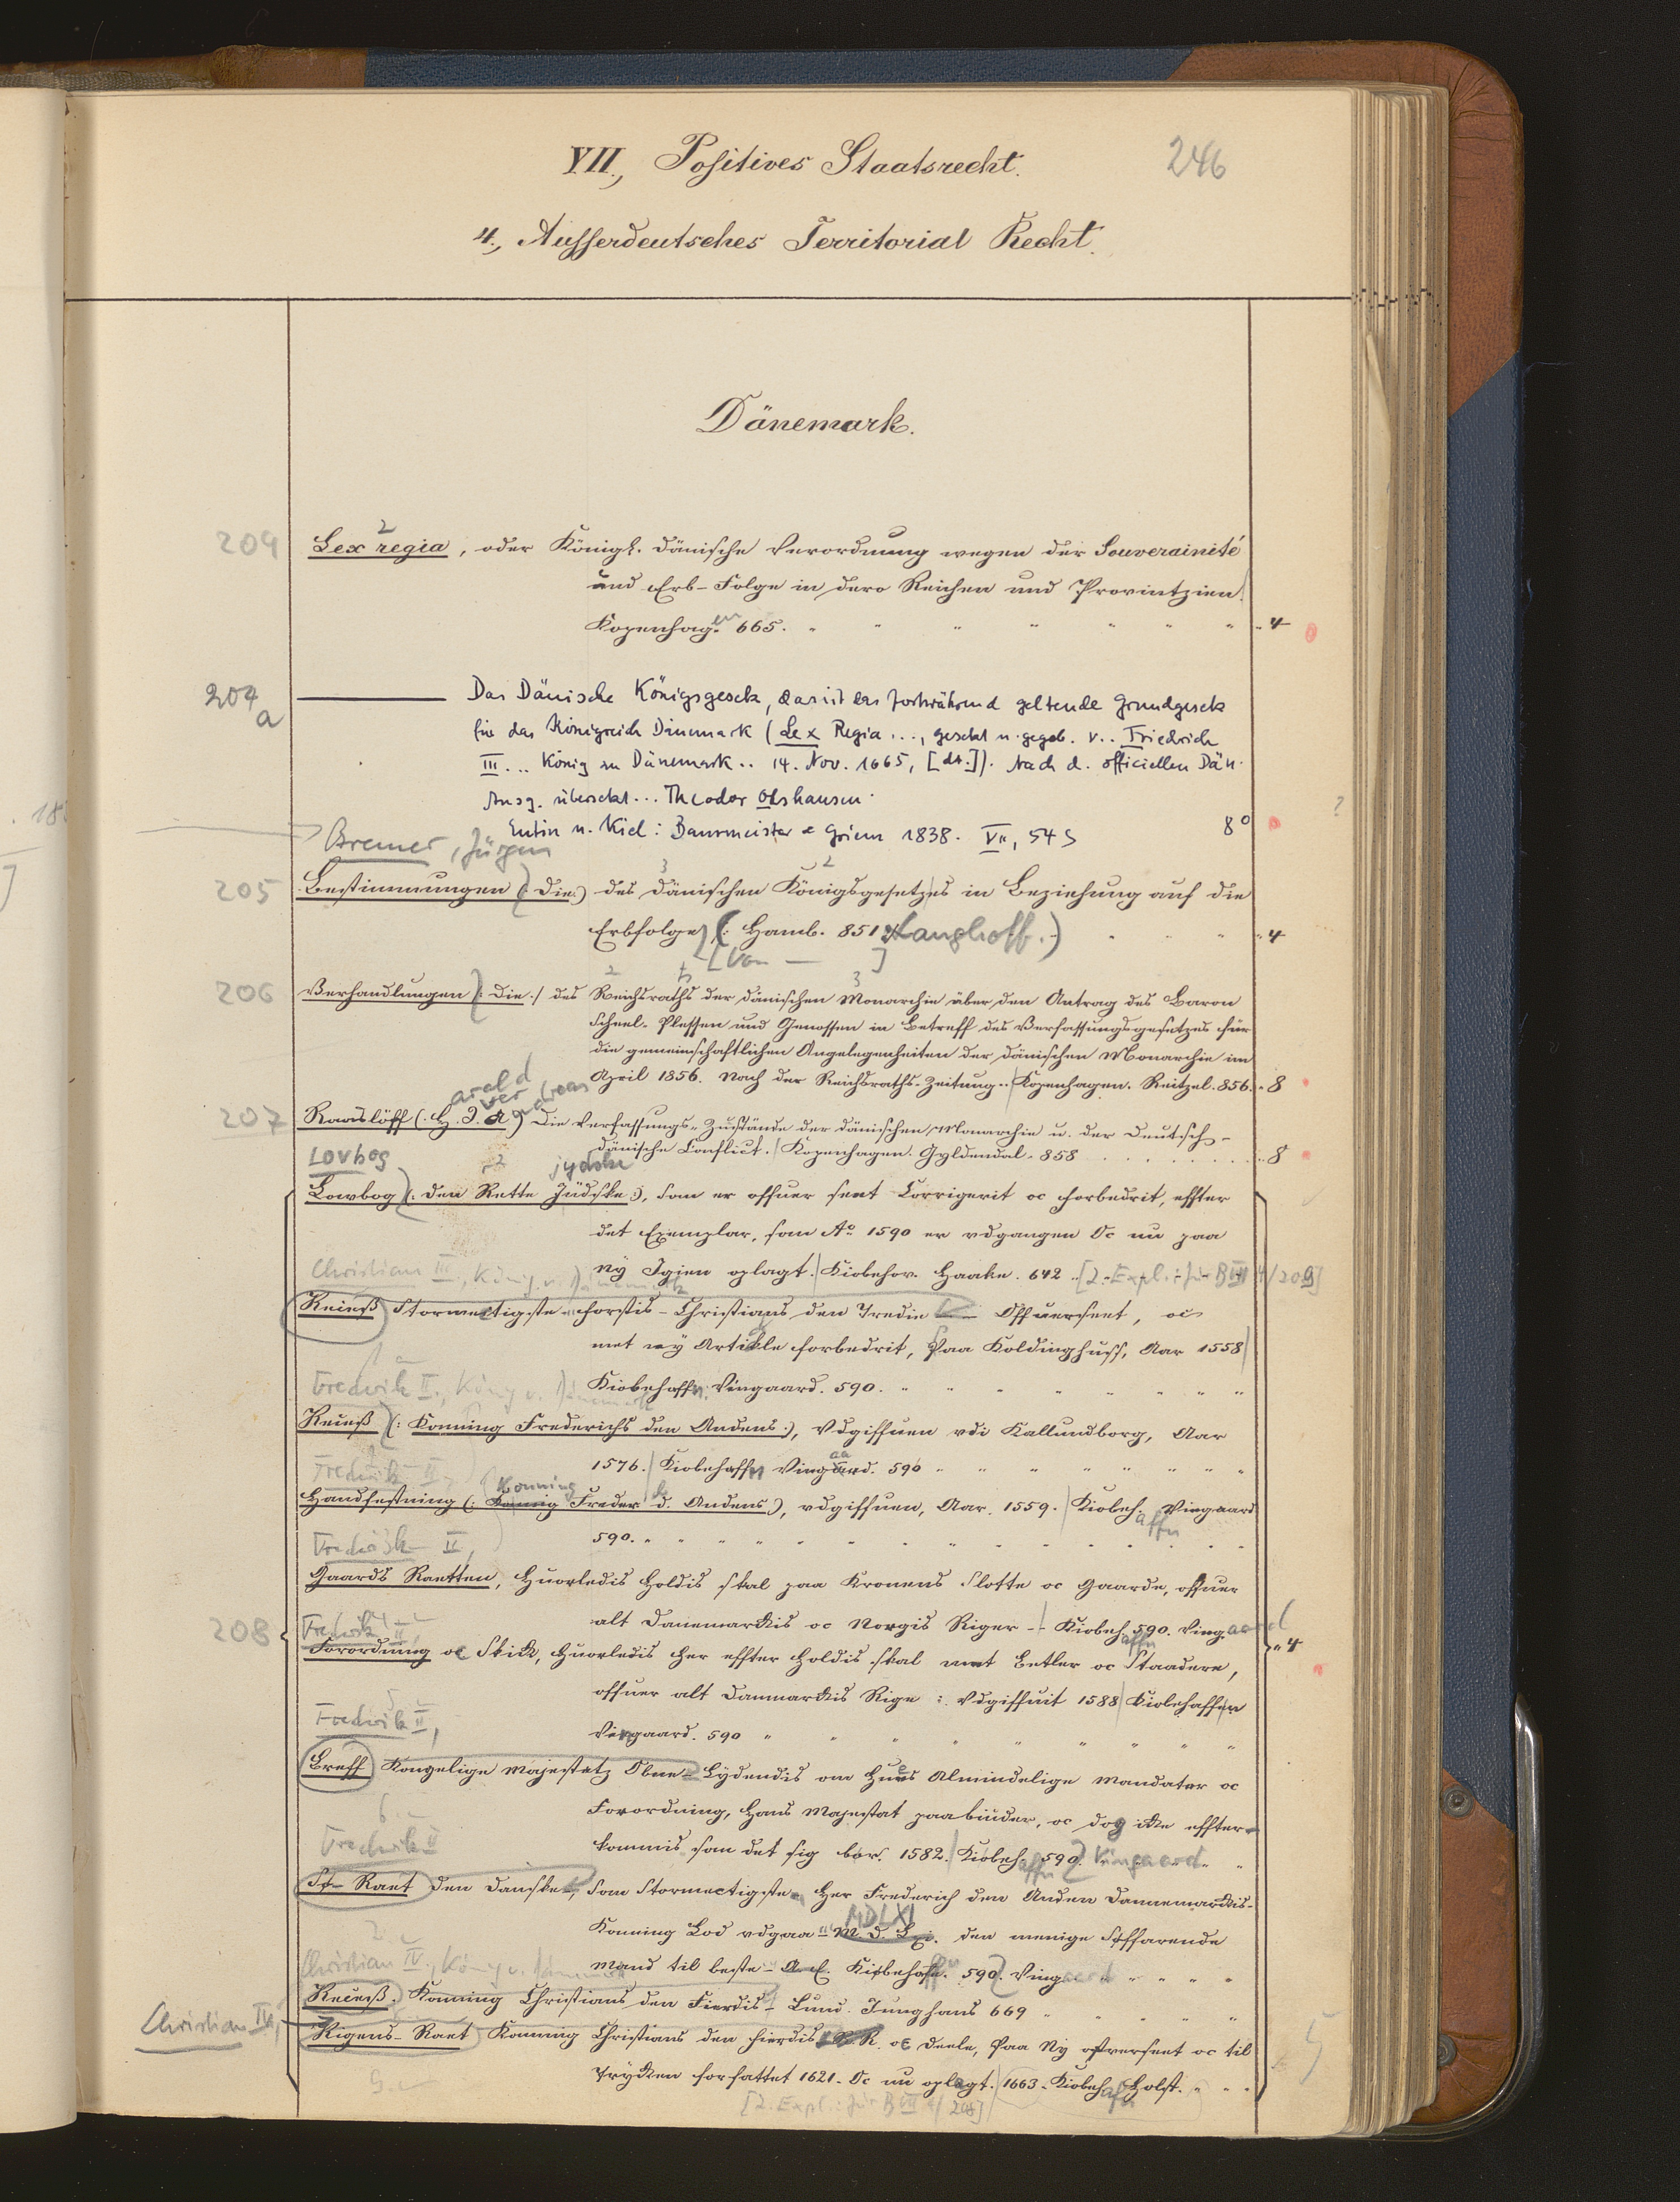 VII., Positives Staatsrecht.
246
4., Ausserdeutsches Territorial Recht.
Dänemark.
204
2
Lex regia, oder Königl. dänische Verordnung wegen der Souverainité
und Erb-Folge in dero Reichen und Provintzien.
Kopenhag.en 665. " " " " " " " " 4
204a
Das Dänische Königsgesetz, das ist das fortwährend geltende Grundgesetz
für das Königreich Dänemark (Lex Regia ..., gesetzt u. gegeb. v.. Friedrich
III... König zu Dänemark .. 14. Nov. 1665, [dt.]). Nach d. officiellen Dän.
Ausg. übersetzt... Theodor Olshausen.
Eutin u. Kiel: Baurmeister & Griem 1838. VII, 54 S 8°
?
Bremer, Jürgen
3 2
205 Bestimmungen (: Die :) des dänischen Königsgesetzes in Beziehung auf die
Erbfolge (: Hamb. 851 Langhoff.) " 4
[Von — ]
2 3
206 Verhandlungen (: Die :) des Reichsraths der dänischen Monarchie über den Antrag des Baron
Scheel-Plessen und Genossen in Betreff des Verfassungsgesetzes für
die gemeinschaftlichen Angelegenheiten der dänischen Monarchie im
April 1856. Nach der Reichsraths-Zeitung.. Kopenhagen. Reitzel. 856. " 8
arald ver ndreas
207 Raaslöff (: H. I. A :) Die Verfassungs-Zustände der dänischen Monarchie u. der Deutsch-
dänische Conflict. Kopenhagen. Gyldendal. 858 " 8
Lovbog jydske
Lowbog (: den Rette Jüdske :), som er offuer seet Corrigerit oc forbedrit, effter
det Exemplar, som A° 1590 er vdgangen Oc nu paa
ny Igien oplagt. Kiobehov. Haake. 642 .. [2. Expl.: für B VII 4/209]
Christian III., König v. Dänemark
Recess Stormectigste forstis Christians den Tredie Offuerseet, oc
met ny Artikle forbedrit, Paa Koldinghuss, Aar 1558
Kiobehaffn. Vingaard. 590. " " " " " " " "
1
Fredrik II., König v. Dänemark
Recess (: Konning Frederichs den Andens :), Vdgiffuen vdi Kallundborg, Aar
1576. Kiobehaffn Vingaard. 590 " " " " " " " "
2
Fredrik II.,
Konning
Handfestning (: Konnig Freder d. Andens :), vdgiffuen, Aar. 1559. Kiobeh.affn Vingaard
590. " " " " " " " " " "
Fredrik II,
Gaards Raetten, huorledis holdis skal paa Kronens Slotte oc Gaarde, offuer
alt Danemarckis oc Norgis Riger - Kiobeh.affn 590. Ving.aard
4
208
Fredrik II,
Forordning oc Skick, huorledis her effter holdis skal met Betler oc Staadere, " 4
offuer alt Danmarckis Rige: vdgiffuit 1588 Kiobehaffn
Vingaard. 590 " " " " " " "
5
Fredrik II,
Breff Kongelige Majestetz Obne - Lydendis om hues Almindelige Mandater oc
Forordning, hans Majestat paabiuder, oc dog icke effter-
kommis som det sig bør. 1582. Kiobeh.affn 590. Vingaard. "
6.
Fredrik II
Sø-Raet den danske, som Stormectigste Her Frederich den Anden Dannemarckis-
MDLXI
Konning Lod vdgaa M. d. Lxi. den menige Søffarende
Mand til beste - Kiobehaffn. 590. Vingaard " " " "
Christian IV., König v. Dänemark
Recess. Konning Christians den Fierdis - Lund. Junghans 669 " " " " "
Christian IV,
Rigens-Raet Konning Christians den fierdis R. oc Deele, Paa Ny ofverseet oc til
Trycken forfattet 1621. Oc nu oplagt. 1663. Kiobeh.affn Holst. " " "
9.
5
[2. Expl.: für B VII 4/208]